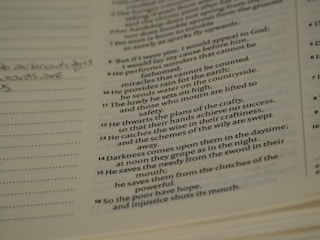 yet man is born to trouble
as surely as sparks fly up
8 "But if I were you, I would appeal to God;
I would lay my cause before him.
9 He performs wonders that cannot be
fathomed,
miracles that cannot be counted.
10 He provides rain for the earth;
he sends water on the countryside.
11 The lowly he sets on high,
and those who mourn are lifted to
safety.
12 He thwarts the plans of the crafty,
so that their hands achieve no success.
13 He catches the wise in their craftiness,
and the schemes of the wily are swept
away.
14 Darkness comes upon them in the daytime;
at noon they grope as in the night.
15 He saves the needy from the sword in their
mouth;
he saves them from the clutches of the
powerful.
16 So the poor have hope,
and injustice shuts its mouth.